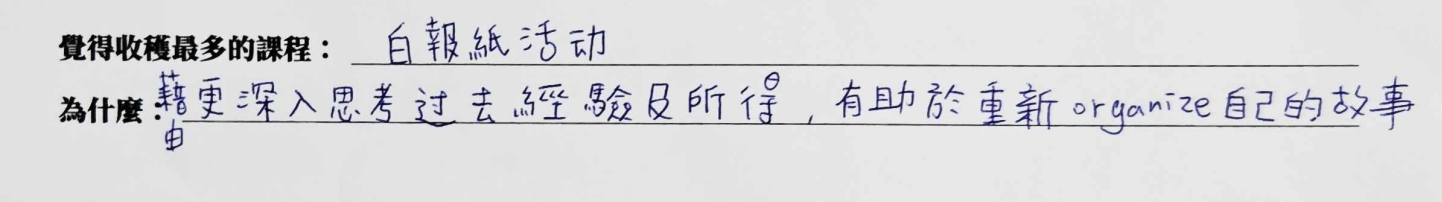 覺得收穫最多的課程：白報紙活动
為什麼：藉由更深入思考过去經驗及所得，有助於重新organize自己的故事